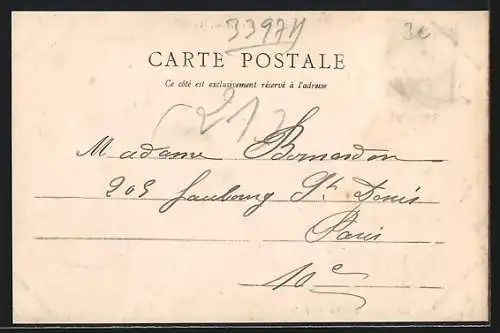 33971
3e
CARTE POSTALE
Ce côté est exclusivement réservé à l'adresse
(21)
Madame Bonnardon
209 faubourg St Denis
Paris
10e